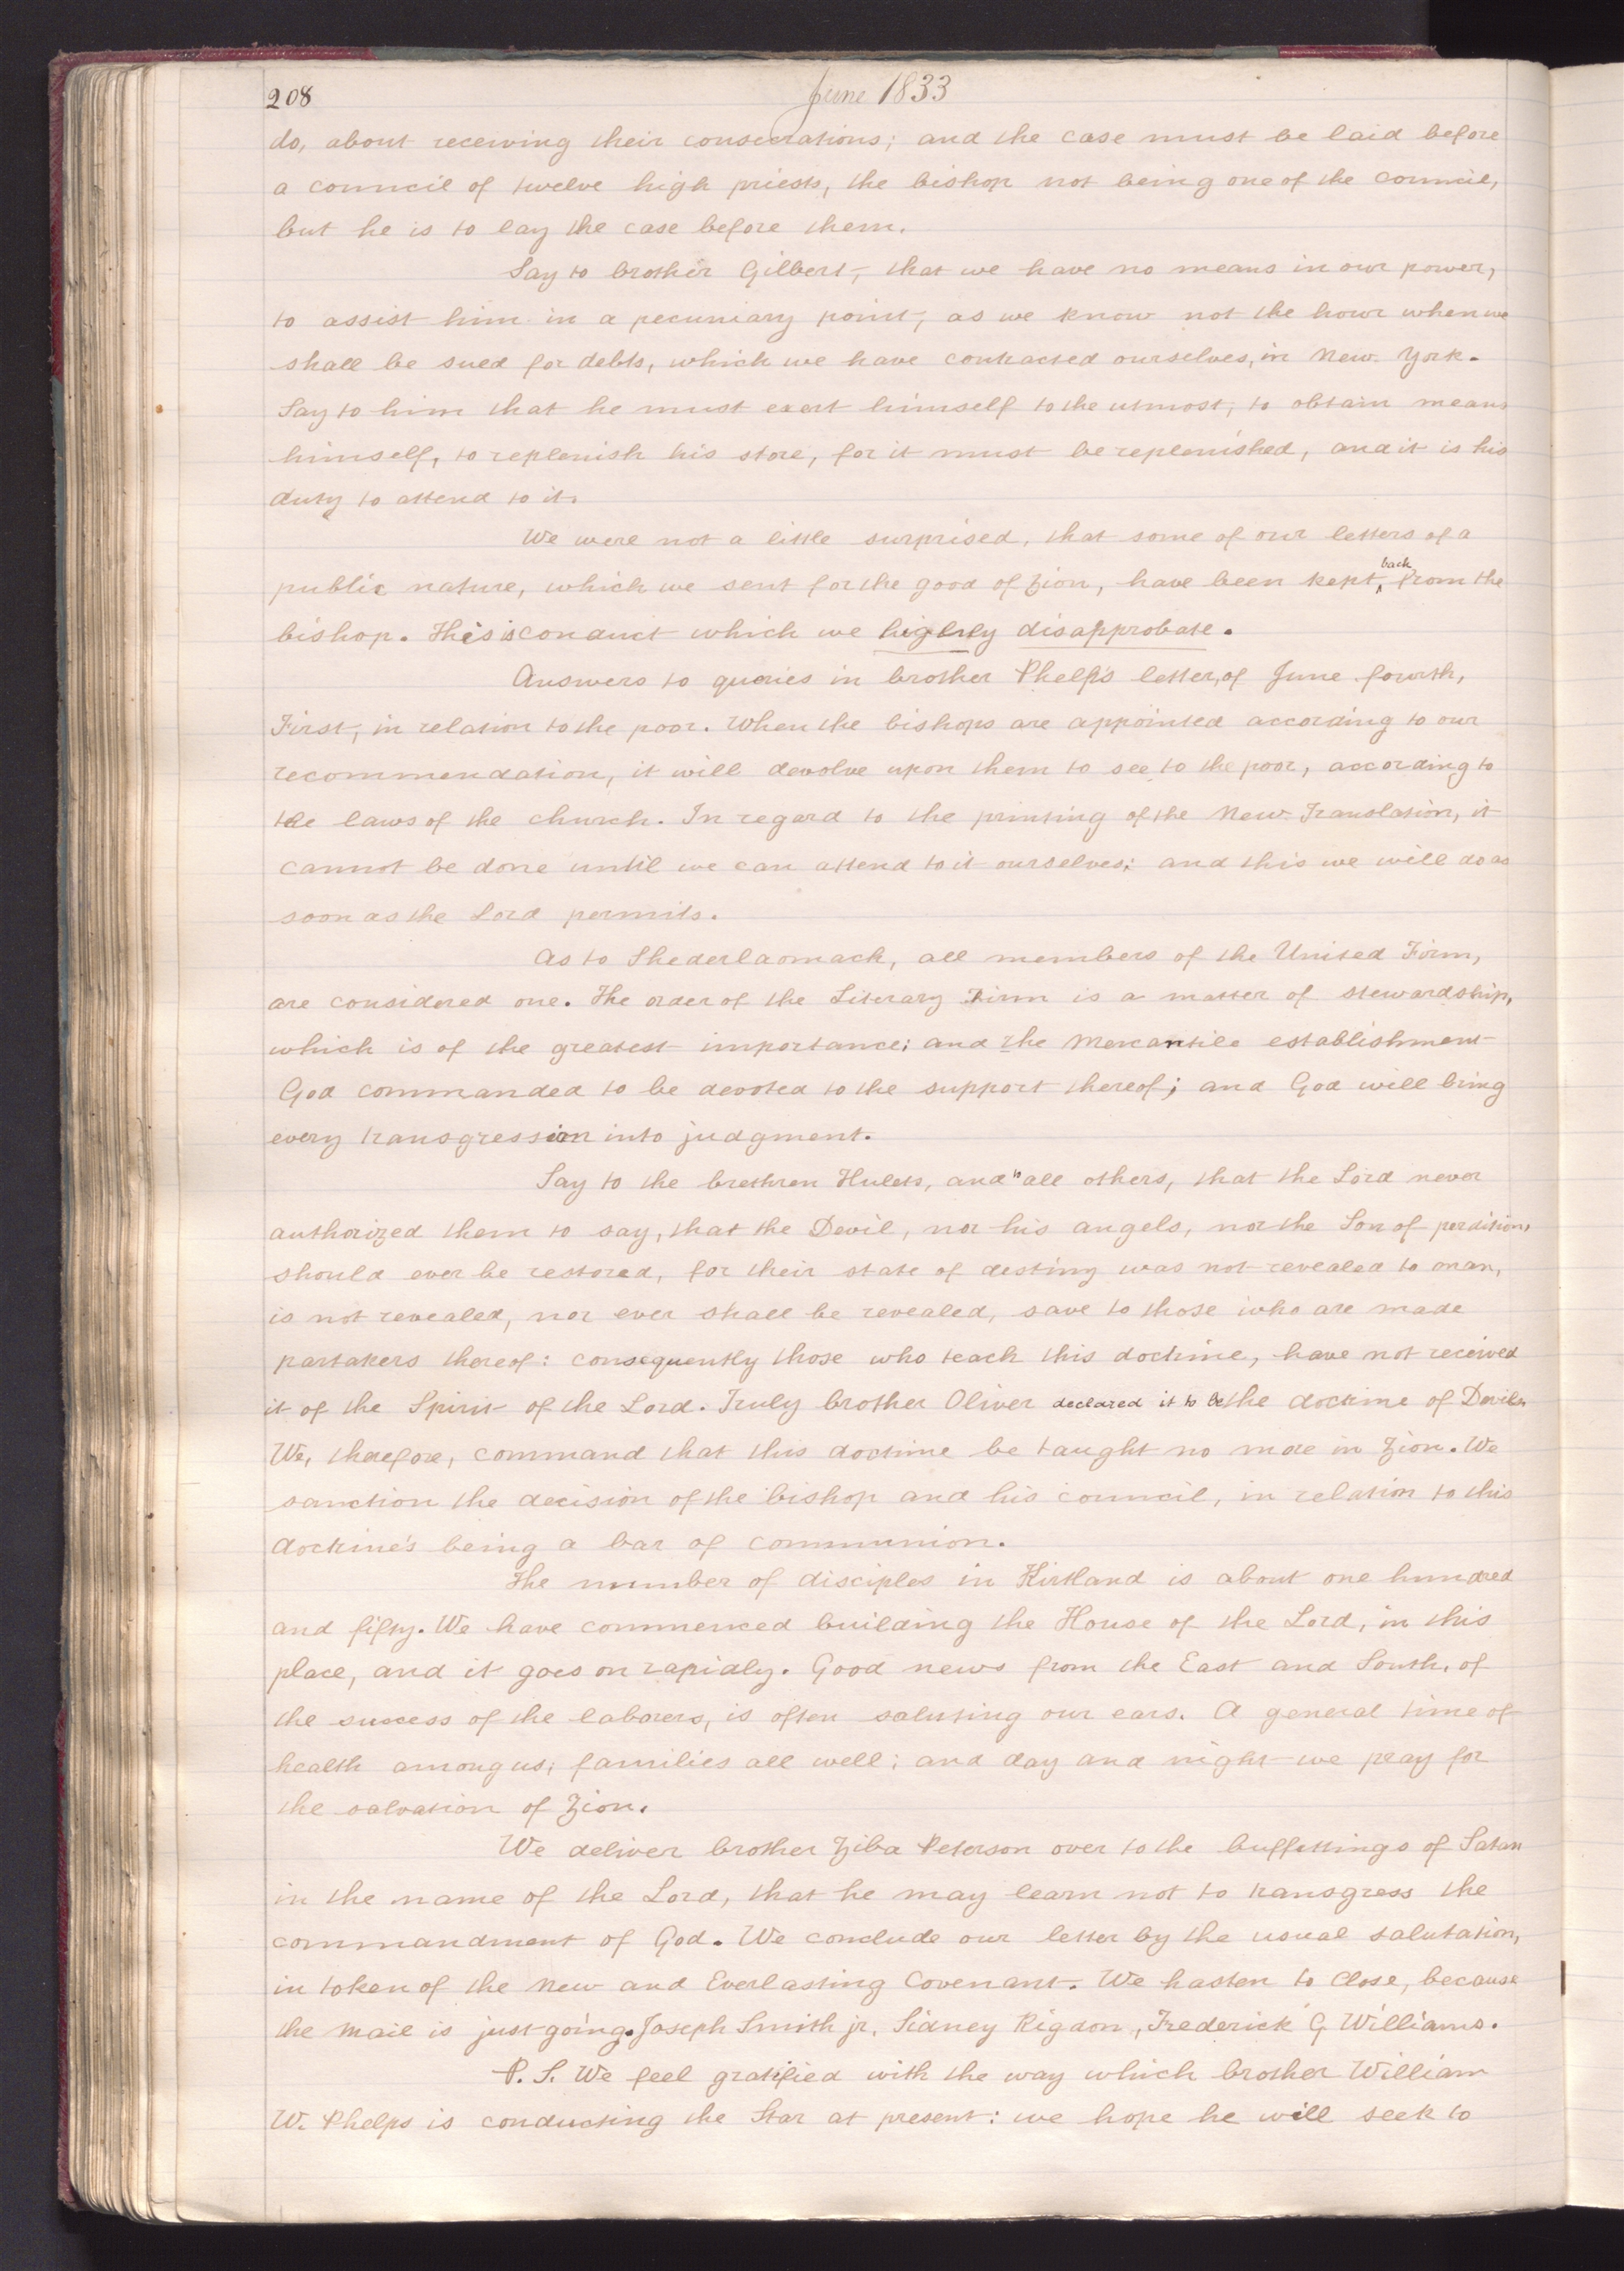 208
June 1833
do, about receiving their consecrations; and the case must be laid before
a council of twelve high priests, the bishop not being one of the council,
but he is to lay the case before them.
Say to brother Gilbert, that we have no means in our power,
to assist him in a pecuniary point, as we know not the hour when we
shall be sued for debts, which we have contracted ourselves, in New York.
Say to him that he must exert himself to the utmost, to obtain means
himself, to replenish his store, for it must be replenished, and it is his
duty to attend to it.
We were not a little surprised, that some of our letters of a
public nature, which we sent for the good of Zion, have been kept back from the
bishop. This is conduct which we highly disapprobate.
Answers to queries in brother Phelp's letter, of June fourth,
First, in relation to the poor. When the bishops are appointed according to our
recommendation, it will devolve upon them to see to the poor, according to
the laws of the church. In regard to the printing of the New Translation, it
cannot be done until we can attend to it ourselves; and this we will do as
soon as the Lord permits.
As to Shederlaomach, all members of the United Firm,
are considered one. The order of the Literary Firm is a matter of stewardship,
which is of the greatest importance; and the Mercantile establishment
God commanded to be devoted to the support thereof; and God will bring
every transgression into judgment.
Say to the brethren Hulets, and to all others, that the Lord never
authorized them to say, that the Devil, nor his angels, nor the Son of perdition,
should ever be restored, for their state of destiny was not revealed to man,
is not revealed, nor ever shall be revealed, save to those who are made
partakers thereof: consequently those who teach this doctrine, have not received
it of the Spirit of the Lord. Truly brother Oliver declared it to be the doctrine of Devils.
We, therefore, command that this doctrine be taught no more in Zion. We
sanction the decision of the bishop and his council, in relation to this
doctrine's being a bar of communion.
The number of disciples in Kirtland is about one hundred
and fifty. We have commenced building the House of the Lord, in this
place, and it goes on rapidly. Good news from the East and South, of
the success of the laborers, is often saluting our ears. A general time of
health among us; families all well; and day and night we pray for
the salvation of Zion.
We deliver brother Ziba Peterson over to the buffettings of Satan
in the name of the Lord, that he may learn not to transgress the
commandment of God. We conclude our letter by the usual salutation,
in token of the New and Everlasting Covenant. We hasten to close, because
the Mail is just going. Joseph Smith jr, Sidney Rigdon, Frederick G Williams.
P. S. We feel gratified with the way which brother William
W. Phelps is conducting the Star at present: we hope he will seek to